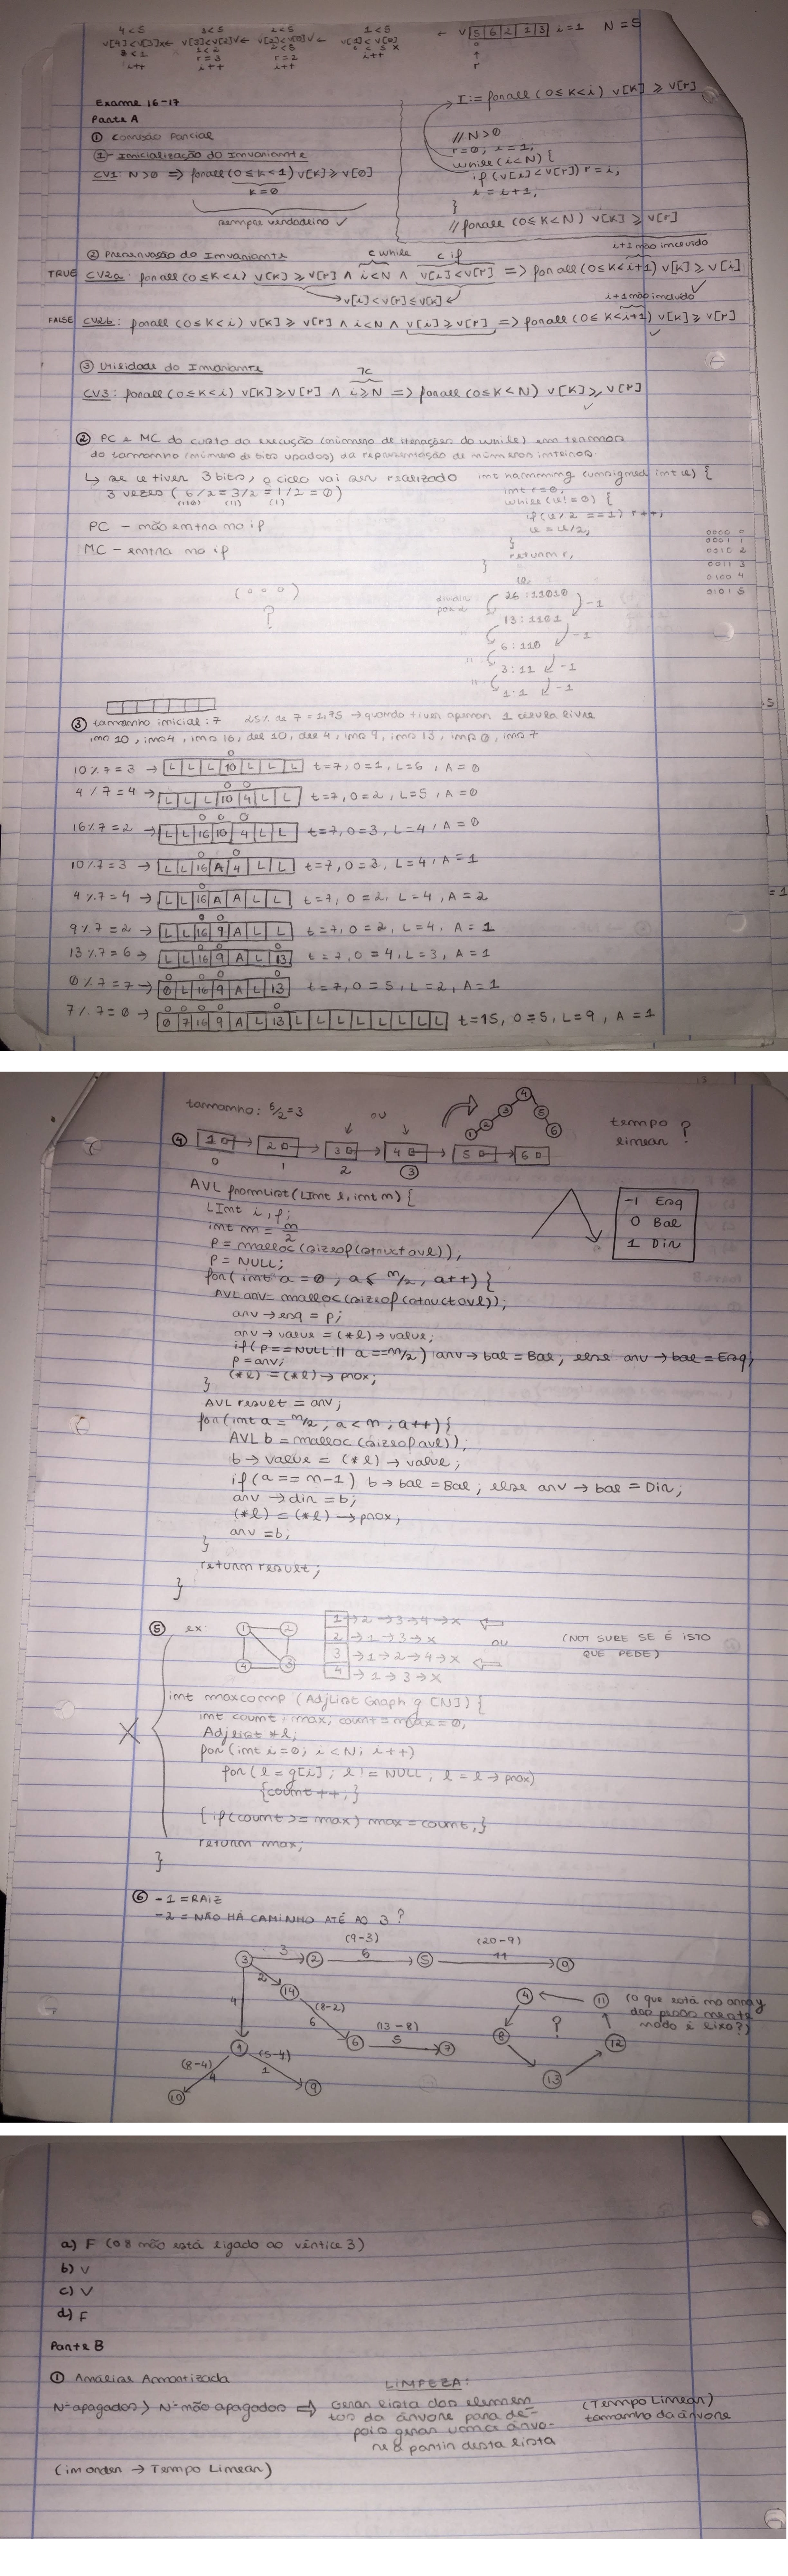 4<5 3<5 2<5 1<5
v[4]<v[3]x← v[3]<v[2]v← v[2]<v[0]v← v[1]<v[0] ← v 5 6 2 1 3 i=1 N=5
3<1 1<2 2<5 6<5 x
i++ r=3 r=2 i++
i++ i++
r
Exame 16-17
Parte A
① Correção Parcial
①- Inicialização do Invariante
CV1: N>0 => forall (0≤k<1) v[k]≥v[0]
k=0
sempre verdadeiro ✓
I:= forall (0≤k<i) v[k] ≥ v[r]
//N>0
r=0; i=1;
while(i<N) {
if (v[i]<v[r]) r=i;
i=i+1;
}
//forall (0≤k<N) v[k] ≥ v[r]
② Preservação do Invariante c while c if i+1 não incluído
TRUE CV2a: forall (0≤k<i) v[k]≥v[r] ∧ i<N ∧ v[i]<v[r] => forall (0≤k<i+1) v[k]≥v[i]
→v[i]<v[r]≤v[k]← i+1 não incluído
FALSE CV2b: forall (0≤k<i) v[k]≥v[r] ∧ i<N ∧ v[i]≥v[r] => forall (0≤k<i+1) v[k]≥v[r]
③ Utilidade do Invariante ¬c
CV3: forall (0≤k<i) v[k]≥v[r] ∧ i≥N => forall (0≤k<N) v[k]≥v[r]
② PC e MC do custo da execução (número de iterações do while) em termos
do tamanho (número de bits usados) da representação de números inteiros.
↳ se u tiver 3 bits, o ciclo vai ser realizado
3 vezes (6/2=3/2=1/2=0)
(110) (11) (1)
PC - não entra no if
MC - entra no if
(000)
?
int hamming (unsigned int u) {
int r=0;
while(u!=0) {
if(u%2==1) r++;
u=u/2;
}
return r;
}
0000 0
0001 1
0010 2
0011 3
0100 4
0101 5
u
dividir por 2
26:11010
-1
13:1101
" -1
6:110
" -1
3:11
" -1
1:1
③ tamanho inicial: 7 25% de 7=1,75 → quando tiver apenas 1 célula livre
ins 10, ins 4, ins 16, del 10, del 4, ins 9, ins 13, ins 0, ins 7
10%7=3 → L L L 10 L L L t=7, O=1, L=6, A=0
4%7=4 → L L L 10 4 L L t=7, O=2, L=5, A=0
16%7=2 → L L 16 10 4 L L t=7, O=3, L=4, A=0
10%7=3 → L L 16 A 4 L L t=7, O=3, L=4, A=1
4%7=4 → L L 16 A A L L t=7, O=2, L=4, A=2
9%7=2 → L L 16 9 A L L t=7, O=2, L=4, A=1
13%7=6 → L L 16 9 A L 13 t=7, O=4, L=3, A=1
0%7=7 → 0 L 16 9 A L 13 t=7, O=5, L=2, A=1
7%7=0 → 0 7 16 9 A L 13 L L L L L L L L t=15, O=5, L=9, A=1
tamanho: 6/2=3 ou
④ 1 2 3 4 5 6
0 1 2 ③
4
3 5
2 6
1
tempo linear ?
AVL fromList(LInt l, int n) {
LInt i, p;
int m = n/2
p = malloc(sizeof(struct avl));
p = NULL;
for(int a=0; a< n/2; a++) {
AVL arv = malloc(sizeof(struct avl));
arv→esq = p;
arv→value = (*l)→value;
if(p==NULL || a==n/2) arv→bal=Bal; else arv→bal=Esq;
p=arv;
(*l) = (*l)→prox;
}
AVL result = arv;
for(int a=n/2; a<n; a++) {
AVL b = malloc(sizeof avl));
b→value = (*l)→value;
if(a==n-1) b→bal=Bal; else arv→bal=Dir;
arv→dir=b;
(*l) = (*l)→prox;
arv=b;
}
return result;
}
-1 Esq
0 Bal
1 Dir
⑤ ex:
1 2
4 3
1 →2→3→4→x ⇐
2 →1→3→x ou
3 →1→2→4→x ⇐
4 →1→3→x
(NOT SURE SE É ISTO
QUE PEDE)
int maxcomp (AdjList Graph g[N]) {
int count, max; count=max=0;
Adjlist *l;
for(int i=0; i<N; i++)
for(l=g[i]; l!=NULL; l=l→prox)
{count++;}
{if(count>=max) max=count;}
return max;
}
X
⑥ -1=RAIZ
-2=NÃO HÁ CAMINHO ATÉ AO 3?
(9-3) (20-9)
3 3 2 6 5 11 0
2 14
(8-2)
4 6 6
(13-8)
5 7
1
(8-4) (5-4)
4 1
10 9
4 11
8 ? 12
13
(o que está no array
dos pesos neste
nodo é lixo?)
a) F (o 8 não está ligado ao vértice 3)
b) V
c) V
d) F
Parte B
① Análise Amortizada
LIMPEZA:
Nº apagados > Nº não apagados ⇒ Gerar lista dos elemen-
tos da árvore para de-
pois gerar uma árvo-
re a partir desta lista
(Tempo Linear)
tamanho da árvore
(in order → Tempo Linear)